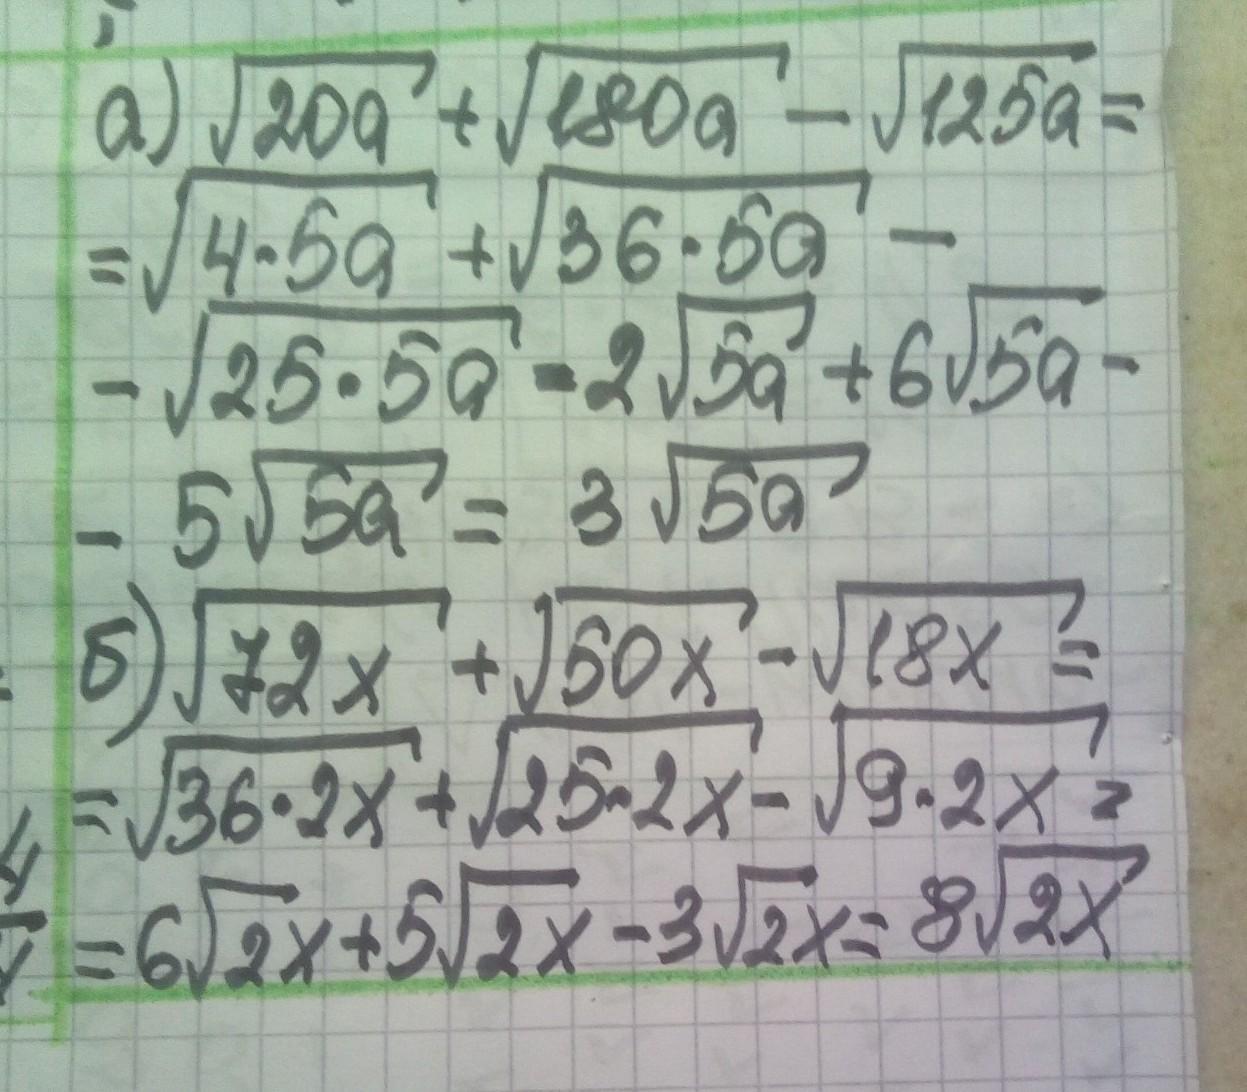 а) √20a + √180a - √125a =
= √4·5a + √36·5a -
- √25·5a = 2√5a + 6√5a -
- 5√5a = 3√5a
б) √72x + √50x - √18x =
= √36·2x + √25·2x - √9·2x =
= 6√2x + 5√2x - 3√2x = 8√2x